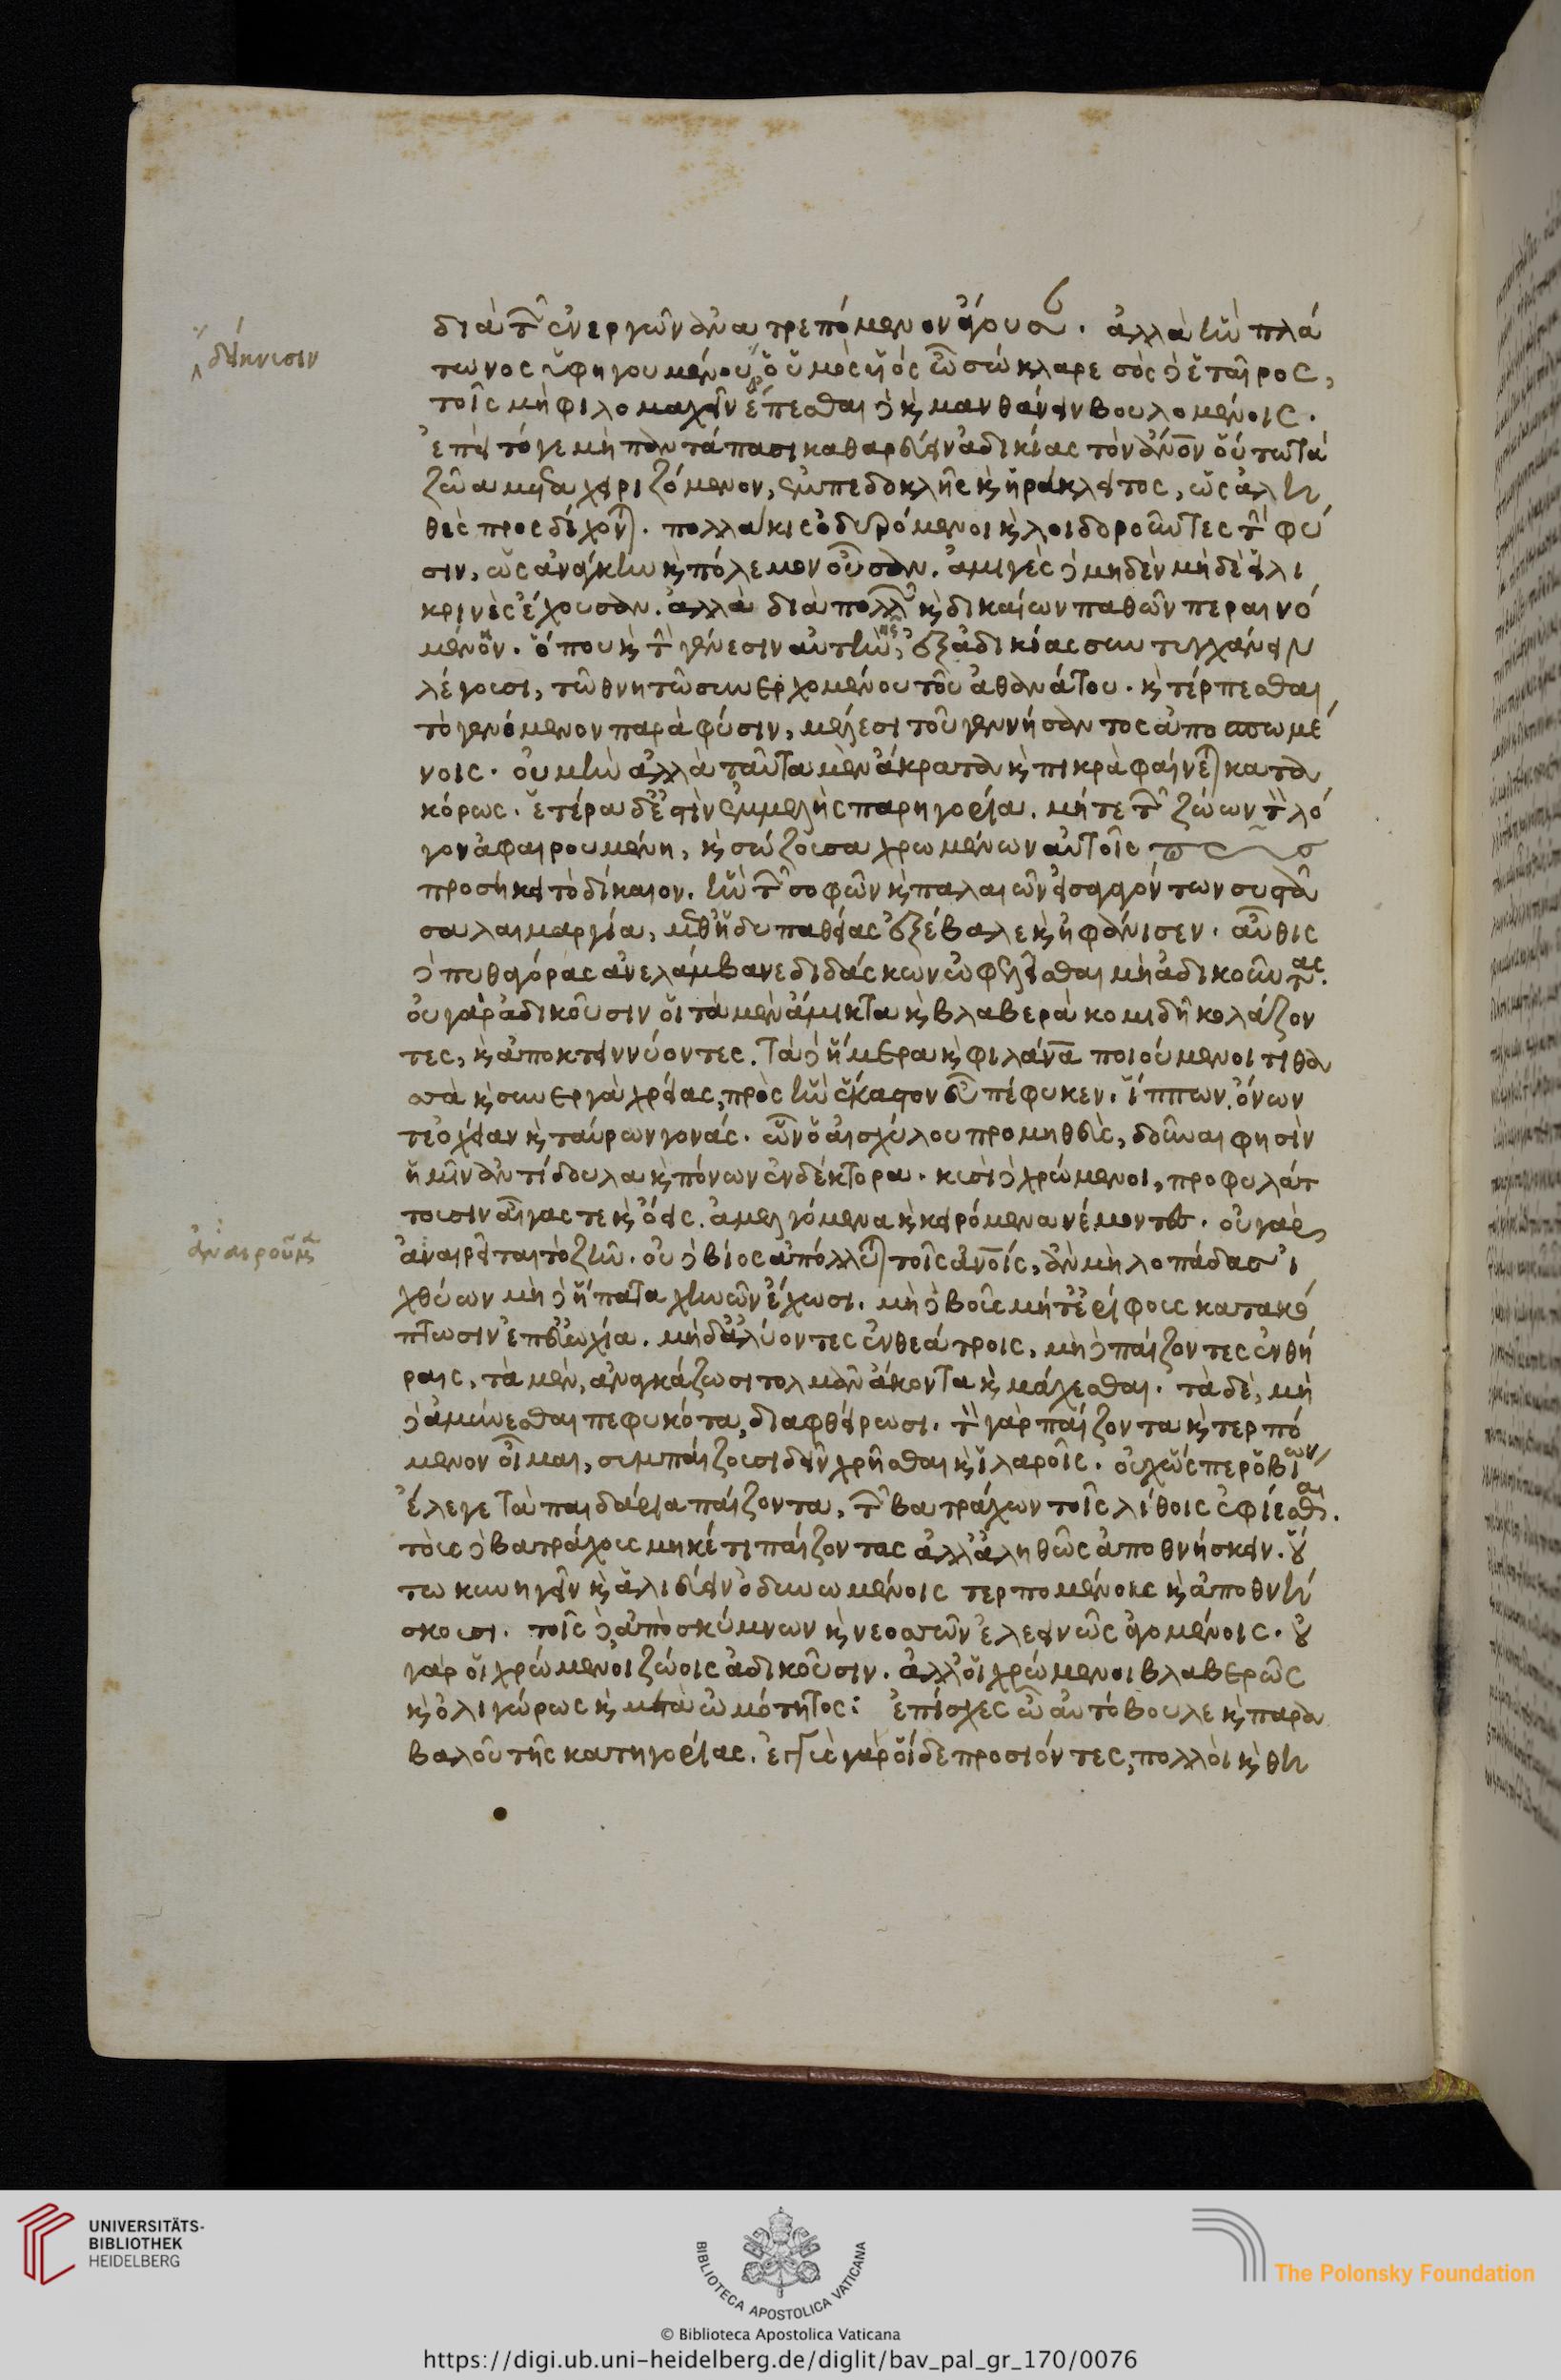 διὰ τῶν ἐνεργῶν ἀνατρεπόμενον ἄγουσιν. ἀλλὰ ἣν πλά
δείκνυσιν
τωνος ὑφηγουμένου, ὁ ὑμὸς υἱός ὦ σώκλαρε σὸς δὲ ἑταῖρος,
τοῖς μὴ φιλομαχεῖν ἕπεσθαι δὲ καὶ μανθάνειν βουλομένοις.
ἐπεὶ τό γε μὴ παντάπασι καθαρεύειν ἀδικίας τὸν ἄνον οὕτω τὰ
ζῶα μεταχειριζόμενον, ἐμπεδοκλῆς καὶ ἡράκλειτος, ὡς ἀλη
θὲς προσδέχονται. πολλάκις ὀδυρόμενοι καὶ λοιδοροῦντες τὴν φύ
σιν, ὡς ἀνάγκην καὶ πόλεμον οὖσαν. ἀμιγὲς δὲ μηδὲν μηδὲ εἰλι
κρινὲς ἔχουσαν. ἀλλὰ διὰ πολλῶν καὶ δικαίων παθῶν περαινό
μενον. ὅπου καὶ τὴν γένεσιν αὐτὴν, ἐξ ἀδικίας συντυγχάνειν
λέγουσι, τῶ θνητῶ συνερχομένου τοῦ ἀθανάτου. καὶ τέρπεσθαι
τὸ γενόμενον παρὰ φύσιν, μέλεσι τοῦ γεννήσαντος ἀποσπωμέ
νοις. οὐ μὴν ἀλλὰ ταῦτα μὲν ἄκρατα καὶ πικρὰ φαίνεται κατα
κόρως. ἑτέρα δέ ἐστὶν ἐμμελὴς παρηγορία. μήτε τῶν ζώων τὸν λό
γον ἀφαιρουμένη, καὶ σώζουσα χρωμένων αὐτοῖς ὡς
προσήκει τὸ δίκαιον. ἣν τῶν σοφῶν καὶ παλαιῶν εἰσαγόντων συστᾶ
σα λαιμαργία, μεθ' ἡδυπαθείας ἐξέβαλε καὶ ἠφάνισεν. αὖθις
δὲ πυθαγόρας ἀνελάμβανε διδάσκων ὠφελεῖσθαι μὴ ἀδικοῦντας.
οὐ γὰρ ἀδικοῦσιν οἱ τὰ μὲν ἄμικτα καὶ βλαβερὰ κομιδῆ κολάζον
τες, καὶ ἀποκτειννύοντες. τὰ δὲ ἥμερα καὶ φιλάνα ποιούμενοι τιθα
σὰ καὶ συνεργὰ χρείας, πρὸς ἣν ἕκαστον εὖ πέφυκεν. ἵππων, ὄνων
τ' ὀχείαν καὶ ταύρων γονάς. ὧν ὁ αἰσχύλου προμηθεὺς, δοῦναι φησὶν
ἡμῖν ἀντίδουλα καὶ πόνων ἐνδέκτορα. κυσὶ δὲ χρώμενοι, προφυλάτ
τουσιν αἶγας τε καὶ ὄεις. ἀμελγόμενα καὶ κειρόμενα νέμοντες. οὐ γὰρ
ἀναιροῦμεν
ἀναιρεῖται τὸ ζῆν. οὐ δὲ βίος ἀπόλλυται τοῖς ἀνοίς, ἂν μὴ λοπάδας ἰ
χθύων μὴ δὲ ἥπατα χηνῶν ἔχωσι. μὴ δὲ βοῦς μήτ' ἐρίφους κατακό
πτωσιν ἐπ' εὐωχία. μηδ' ἀλύοντες ἐν θεάτροις, μὴ δὲ παίζοντες ἐν θή
ραις, τὰ μὲν, ἀναγκάζωσι τολμᾶν ἄκοντα καὶ μάχεσθαι. τὰ δὲ, μὴ
δὲ ἀμύνεσθαι πεφυκότα, διαφθείρωσι. τὸν γὰρ παίζοντα καὶ τερπό
μενον οἶμαι, συμπαίζουσι δεῖν χρῆσθαι καὶ ἱλαροῖς. οὐχ ὥσπερ ὁ βίων
ἔλεγε τὰ παιδάρια παίζοντα, τῶν βατράχων τοῖς λίθοις ἐφίεσθαι.
τοὺς δὲ βατράχους μηκέτι παίζοντας ἀλλ' ἀληθῶς ἀποθνήσκειν. οὕ
τω κυνηγεῖν καὶ ἁλιεύειν ὀδυνωμένοις τερπομένους καὶ ἀποθνή
σκουσι. τοῖς δὲ ἀπὸ σκύμνων καὶ νεοσσῶν ἐλεεινῶς ἀγομένοις. οὐ
γὰρ οἱ χρώμενοι ζώοις ἀδικοῦσιν. ἀλλ' οἱ χρώμενοι βλαβερῶς
καὶ ὀλιγώρως καὶ μετὰ ὠμότητος: ἐπίσχες ὦ αὐτόβουλε καὶ παρα
βαλοῦ τῆς κατηγορίας. ἐγγὺς γὰρ οἵδε προσιόντες, πολλοὶ καὶ θη
UNIVERSITÄTS-
BIBLIOTHEK
HEIDELBERG
BIBLIOTECA APOSTOLICA VATICANA
The Polonsky Foundation
© Biblioteca Apostolica Vaticana
https://digi.ub.uni-heidelberg.de/diglit/bav_pal_gr_170/0076